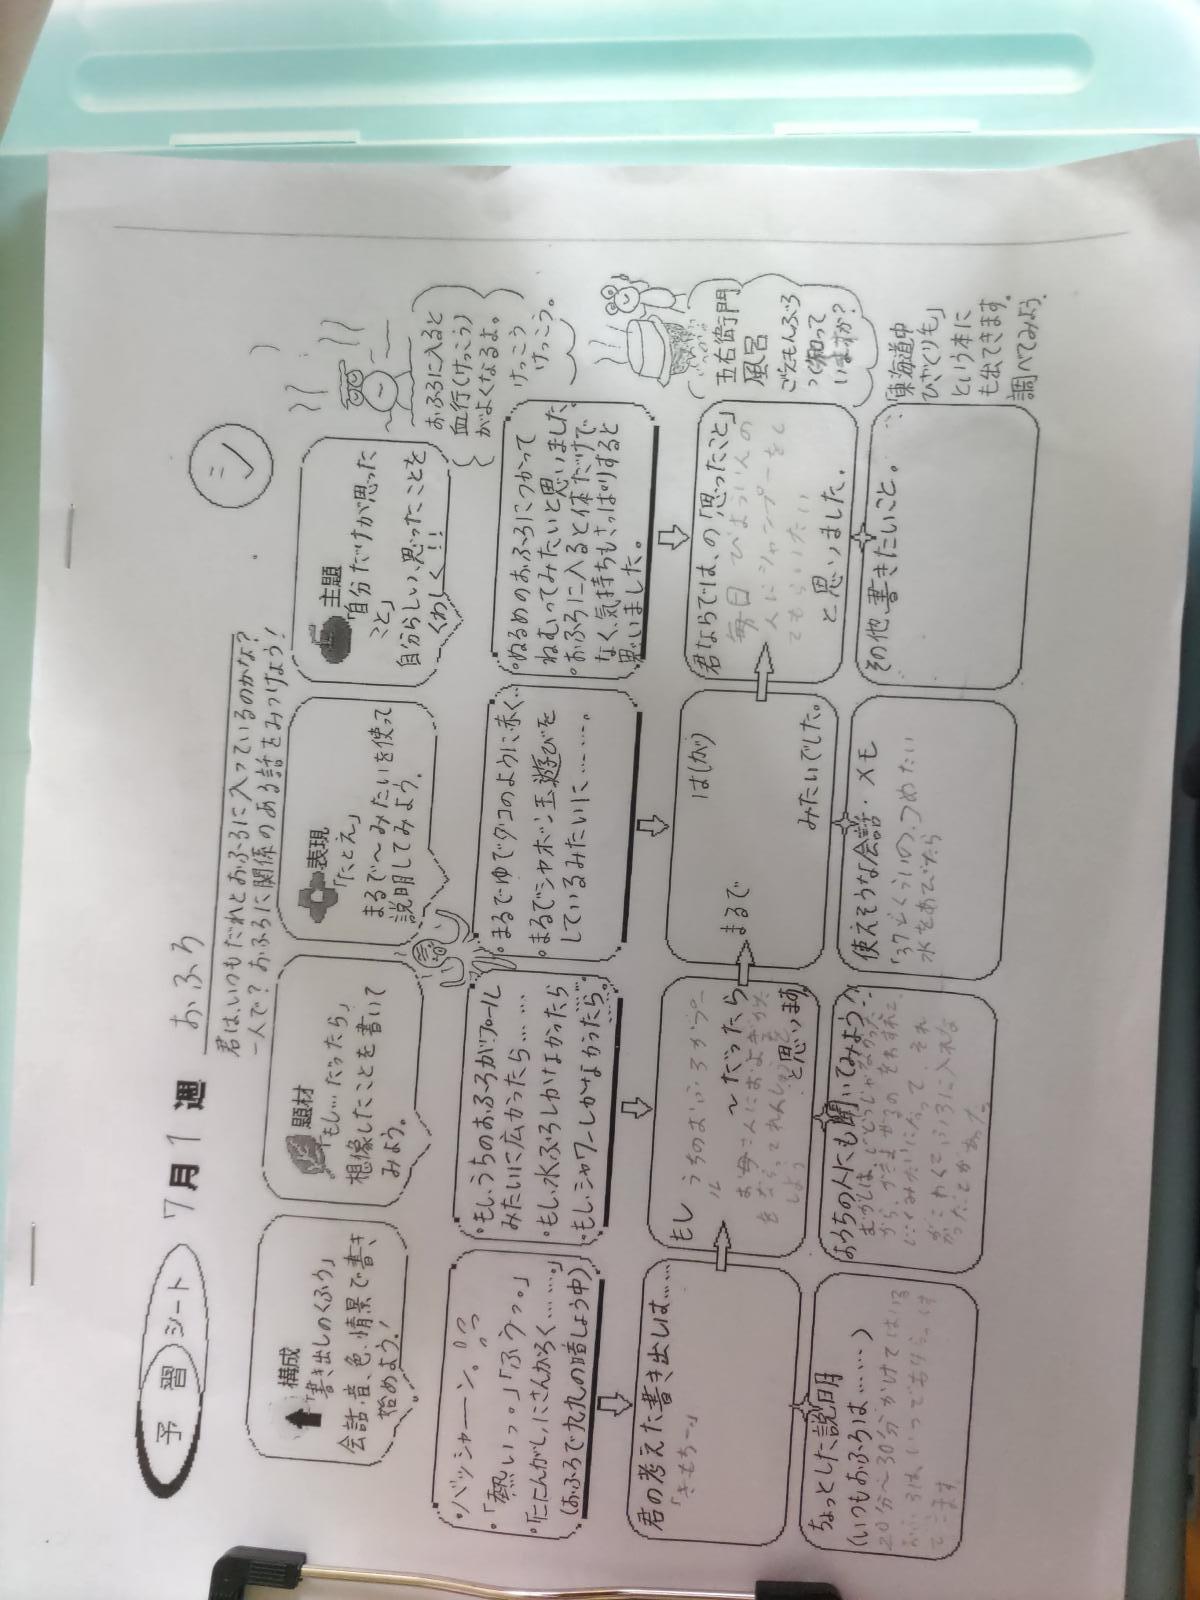 予習シート 7月1週 おふろ
シ
君は、いつもだれとおふろに入っているのかな?
一人で?おふろに関係のある話をみつけよう!
構成
「書き出しのくふう」
会話、音、色、情景で書き
始めよう!
題材
「もし…だったら」
想像したことを書いて
みよう。
表現
「たとえ」
まるで〜みたいを使って
説明してみよう。
主題
「自分だけが思った
こと」
自分らしい、思ったことを
くわしく!!
おふろに入ると
血行(けっこう)
がよくなるよ。
けっこう
けっこう。
・バッシャーーン。
・「熱いっ。」「ふうっ。」
・「ににんがし、にさんがろく……。」
(おふろで九九の暗しょう中)
・もし、うちのおふろがプール
みたいに広かったら……
・もし、水ぶろしかなかったら
・もし、シャワーしかなかったら。
・まるでゆでダコのように赤く…
・まるでシャボン玉遊びを
しているみたいに……。
・ぬるめのおふろにつかって
ねむってみたいと思いました。
・おふろに入ると体だけで
なく、気持ちもさっぱりすると
思いました。
五右衛門
風呂
ごえもんぶろ
って知って
いますか?
君の考えた書き出しは……
「きもちー」
もし うちのおふろがプー
ル 〜だったら
お母さんにおよぎ
と思います。
まるで
はし(が)
みたいでした。
君ならでは、の「思ったこと」
毎日 びよういんの
人にシャンプーをし
てもらいたい
と思いました。
「東海道中
ひざくりも」
という本に
も出てきます。
調べてみよう。
ちょっとした説明
(いつもおふろは……)
20分〜30分かけてはいる
おうちの人にも聞いてみよう!
むかしは、
がこわくておふろに入れな
かったことがあった
使えそうな会話・メモ
「37どくらいの、つめたい
水をあびたら
その他、書きたいこと。